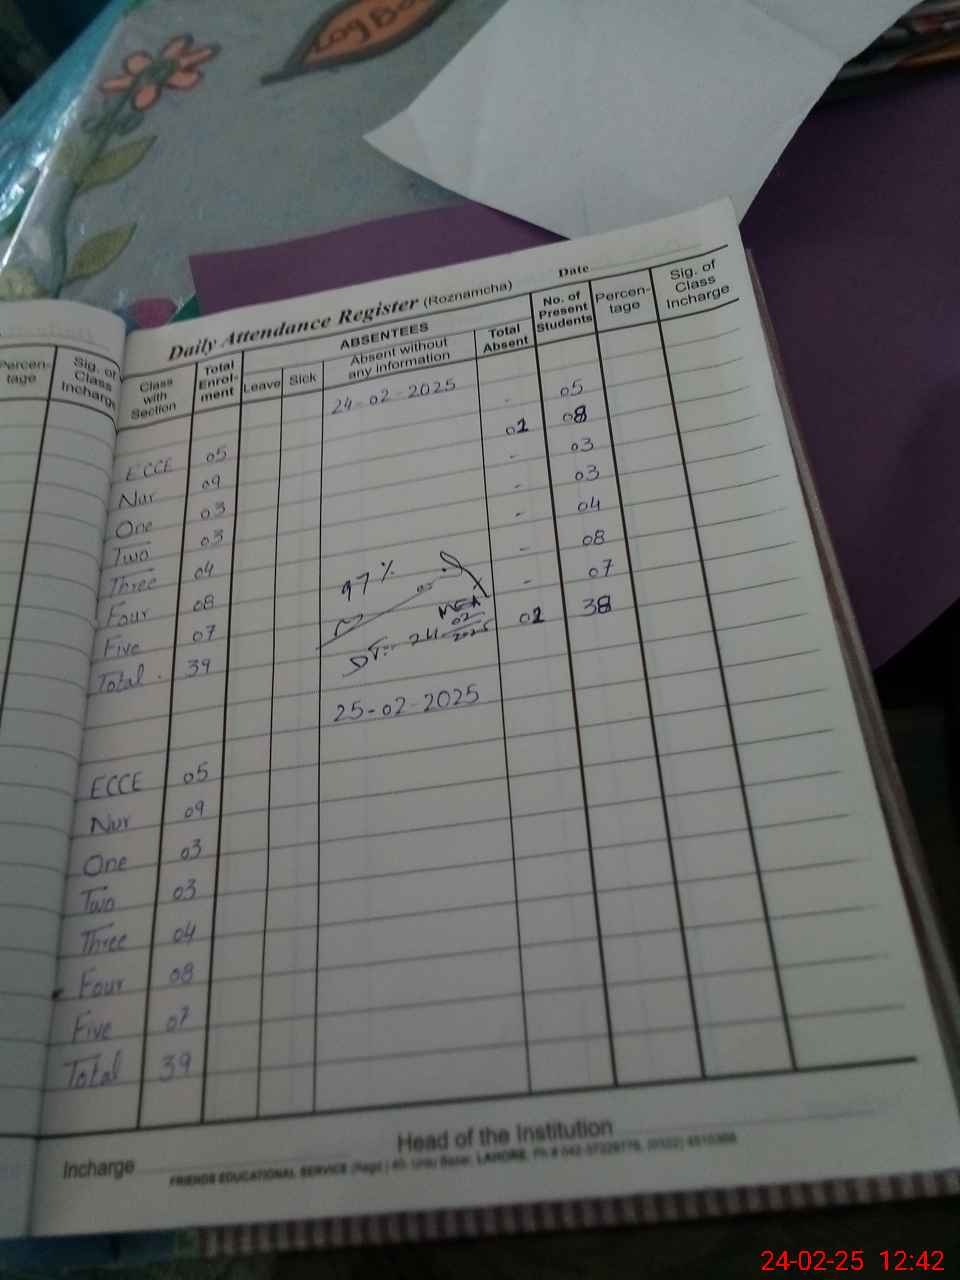 Log Bo
Percen-
tage
Sig. of
Class
Incharge
Daily Attendance Register (Roznamcha)
Date
Class
with
Section
Total
Enrol-
ment
ABSENTEES
Leave
Sick
Absent without
any information
Total
Absent
No. of
Present
Students
Percen-
tage
Sig. of
Class
Incharge
24-02-2025
ECCE 05 - 05
Nur 09 01 08
One 03 - 03
Two 03 - 03
Three 04 - 04
Four 08 - 08
Five 07 - 07
Total. 39 01 38
97%
MEA
DT:- 24/02/2025
25-02-2025
ECCE 05
Nur 09
One 03
Two 03
Three 04
Four 08
Five 07
Total 39
Incharge
Head of the Institution
FRIENDS EDUCATIONAL SERVICE (Regd.) 40- Urdu Bazar, LAHORE.
24-02-25 12:42